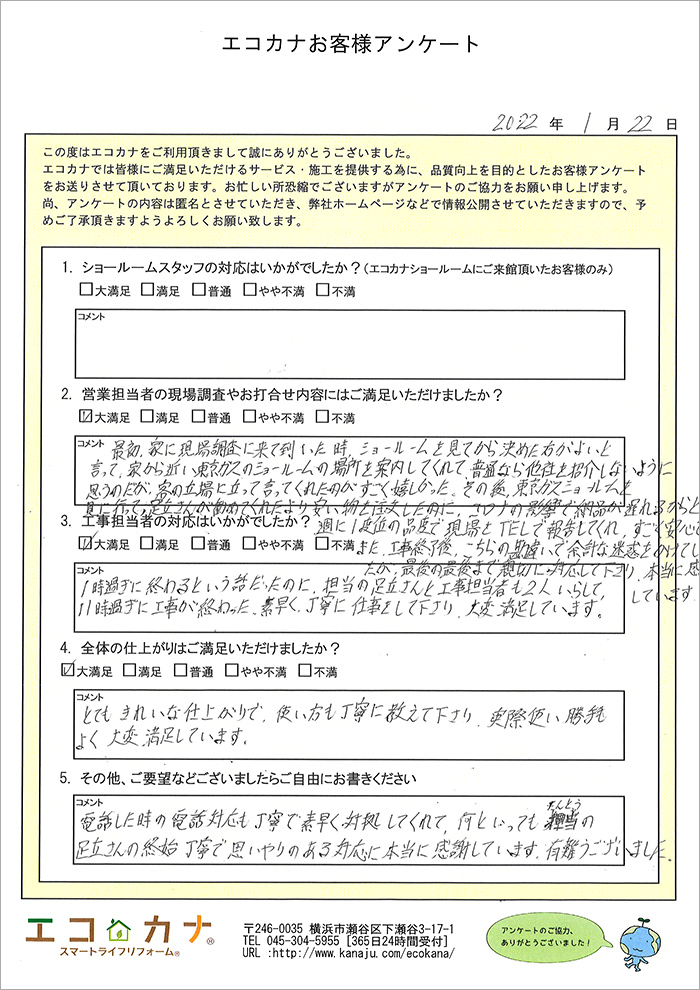 エコカナお客様アンケート
2022 年 1 月 22 日
この度はエコカナをご利用頂きまして誠にありがとうございました。
エコカナでは皆様にご満足いただけるサービス・施工を提供する為に、品質向上を目的としたお客様アンケート
をお送りさせて頂いております。お忙しい所恐縮でございますがアンケートのご協力をお願い申し上げます。
尚、アンケートの内容は匿名とさせていただき、弊社ホームページなどで情報公開させていただきますので、予
めご了承頂きますようよろしくお願い致します。
1. ショールームスタッフの対応はいかがでしたか？(エコカナショールームにご来館頂いたお客様のみ)
□大満足 □満足 □普通 □やや不満 □不満
コメント
2. 営業担当者の現場調査やお打合せ内容にはご満足いただけましたか？
☑大満足 □満足 □普通 □やや不満 □不満
コメント 最初、家に現場調査に来て到いた時、ショールームを見てから決めた方がよいと
言って、家から近い東京ガスのショールームの場所を案内してくれて、普通なら他社を紹介しないように
思うのだが、客の立場に立って言ってくれたのがすごく嬉しかった。その後、東京ガスショールームを
見に行って、足立さんが勧めてくれたより安い物を注文したのに、コロナの影響で納品が遅れるからと
週に1度位の品度で現場をTELで報告してくれ、すごく安心で
また、工事終了後、こちらの勘違いで余計な迷惑をかけてし
たが、最後の最後まで親切に対応して下さり、本当に感
しています
3. 工事担当者の対応はいかがでしたか？
☑大満足 □満足 □普通 □やや不満 □不満
コメント
1時過ぎに終わるという話だったのに、担当の足立さんと工事担当者も2人いらして、
11時過ぎに工事が終わった。素早く、丁寧に仕事をして下さり、大変満足しています。
4. 全体の仕上がりはご満足いただけましたか？
☑大満足 □満足 □普通 □やや不満 □不満
コメント
とてもきれいな仕上がりで、使い方も丁寧に教えて下さり、実際使い勝手も
よく大変満足しています。
5. その他、ご要望などございましたらご自由にお書きください
コメント
たんとう
電話した時の電話対応も丁寧で素早く対処してくれて、何といっても担当の
足立さんの終始丁寧で思いやりのある対応に本当に感謝しています。有難うございました。
エコカナ®
スマートライフリフォーム®
〒246-0035 横浜市瀬谷区下瀬谷3-17-1
TEL 045-304-5955 [365日24時間受付]
URL :http://www.kanaju.com/ecokana/
アンケートのご協力、
ありがとうございました！